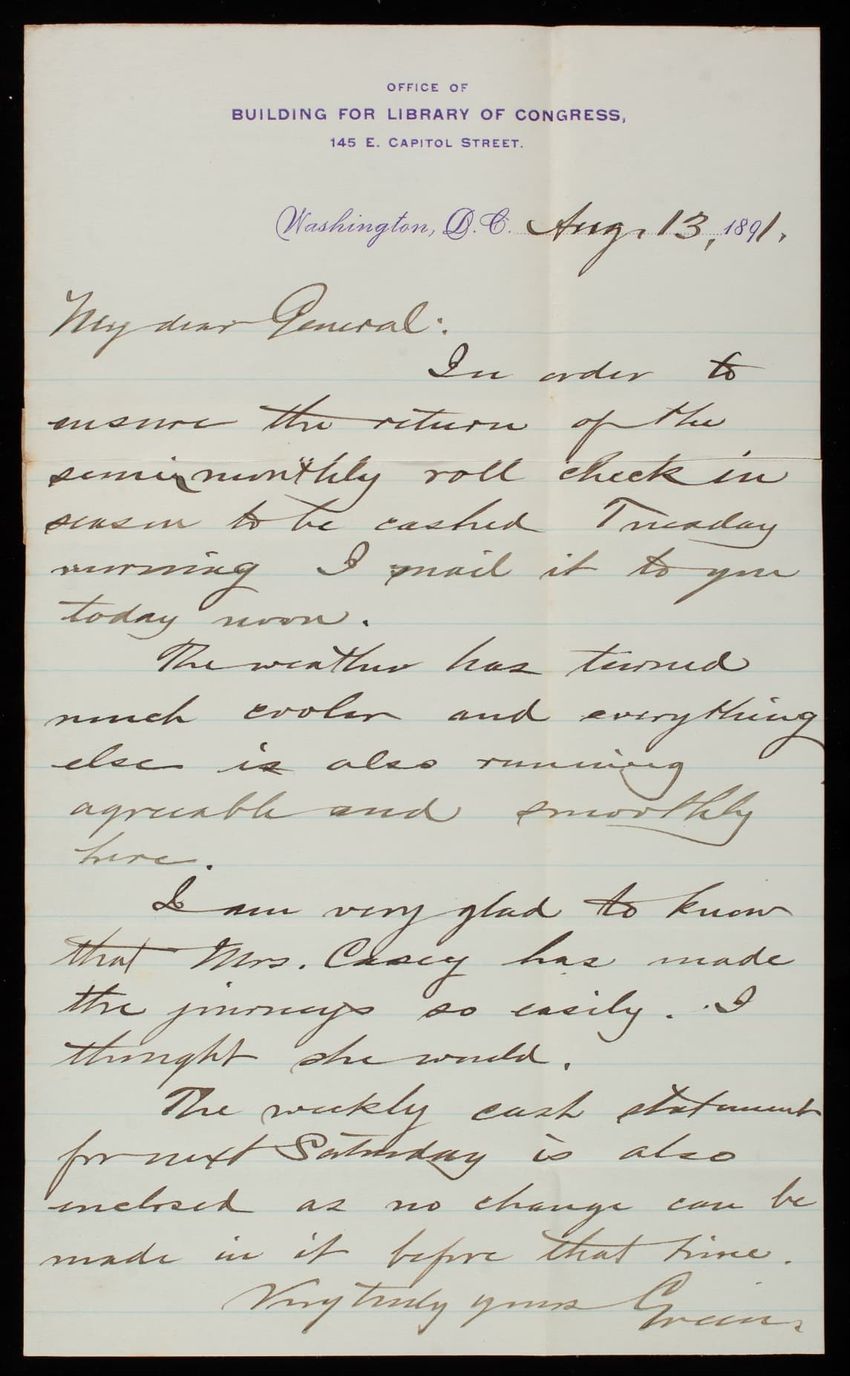 OFFICE OF
BUILDING FOR LIBRARY OF CONGRESS,
145 E. CAPITOL STREET.
Washington, D.C. Aug. 13, 1891.
My dear General:
In order to
ensure the return of the
semi-monthly roll check in
season to be cashed Tuesday
morning I mail it to you
today noon.
The weather has turned
much cooler and everything
else is also running
agreeable and smoothly
here.
I am very glad to know
that Mrs. Casey has made
the journeys so easily. I
thought she would.
The weekly cash statement
for next Saturday is also
enclosed as no change can be
made in it before that time.
Very truly yours Green.